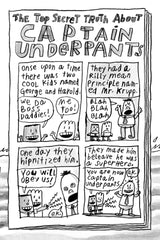 The Top Secret Truth About
CAPTAIN
UNDERPANTS
once upon a time
there was two
COOL KIDS named
George and Harold.
WE DO
BOSS
DADDIES!
ME
TOO!
They had a
Killy mean
Principle nam-
ed Mr. Krupp.
BLAH
BLAH
BLAH
one day they
hipnitized him.
You will
obey us!
OK
They made him
beleave he was
a superhero.
You are now
captain
underpants.
OK